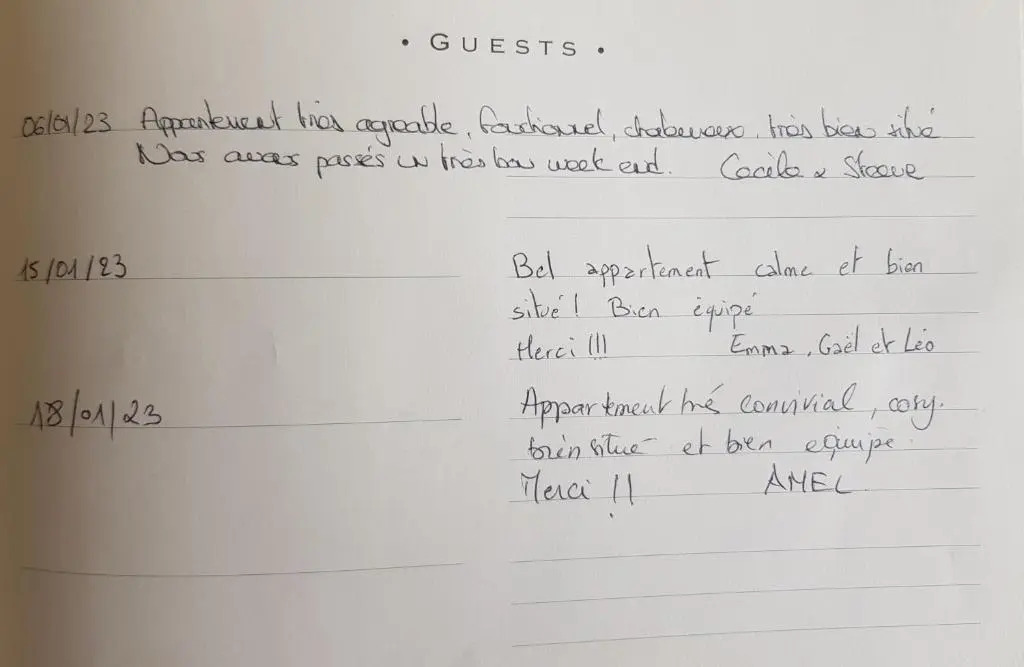 • GUESTS •
06/01/23 Appartement très agréable, fonctionnel, chaleureux, très bien situé
Nous avons passés un très bon week end. Cécile & Steeve
15/01/23 Bel appartement calme et bien
situé! Bien équipé
Merci !!! Emma, Gaël et Léo
18/01/23 Appartement trés convivial, cosy.
bien situé et bien equipé.
Merci !! AMEL